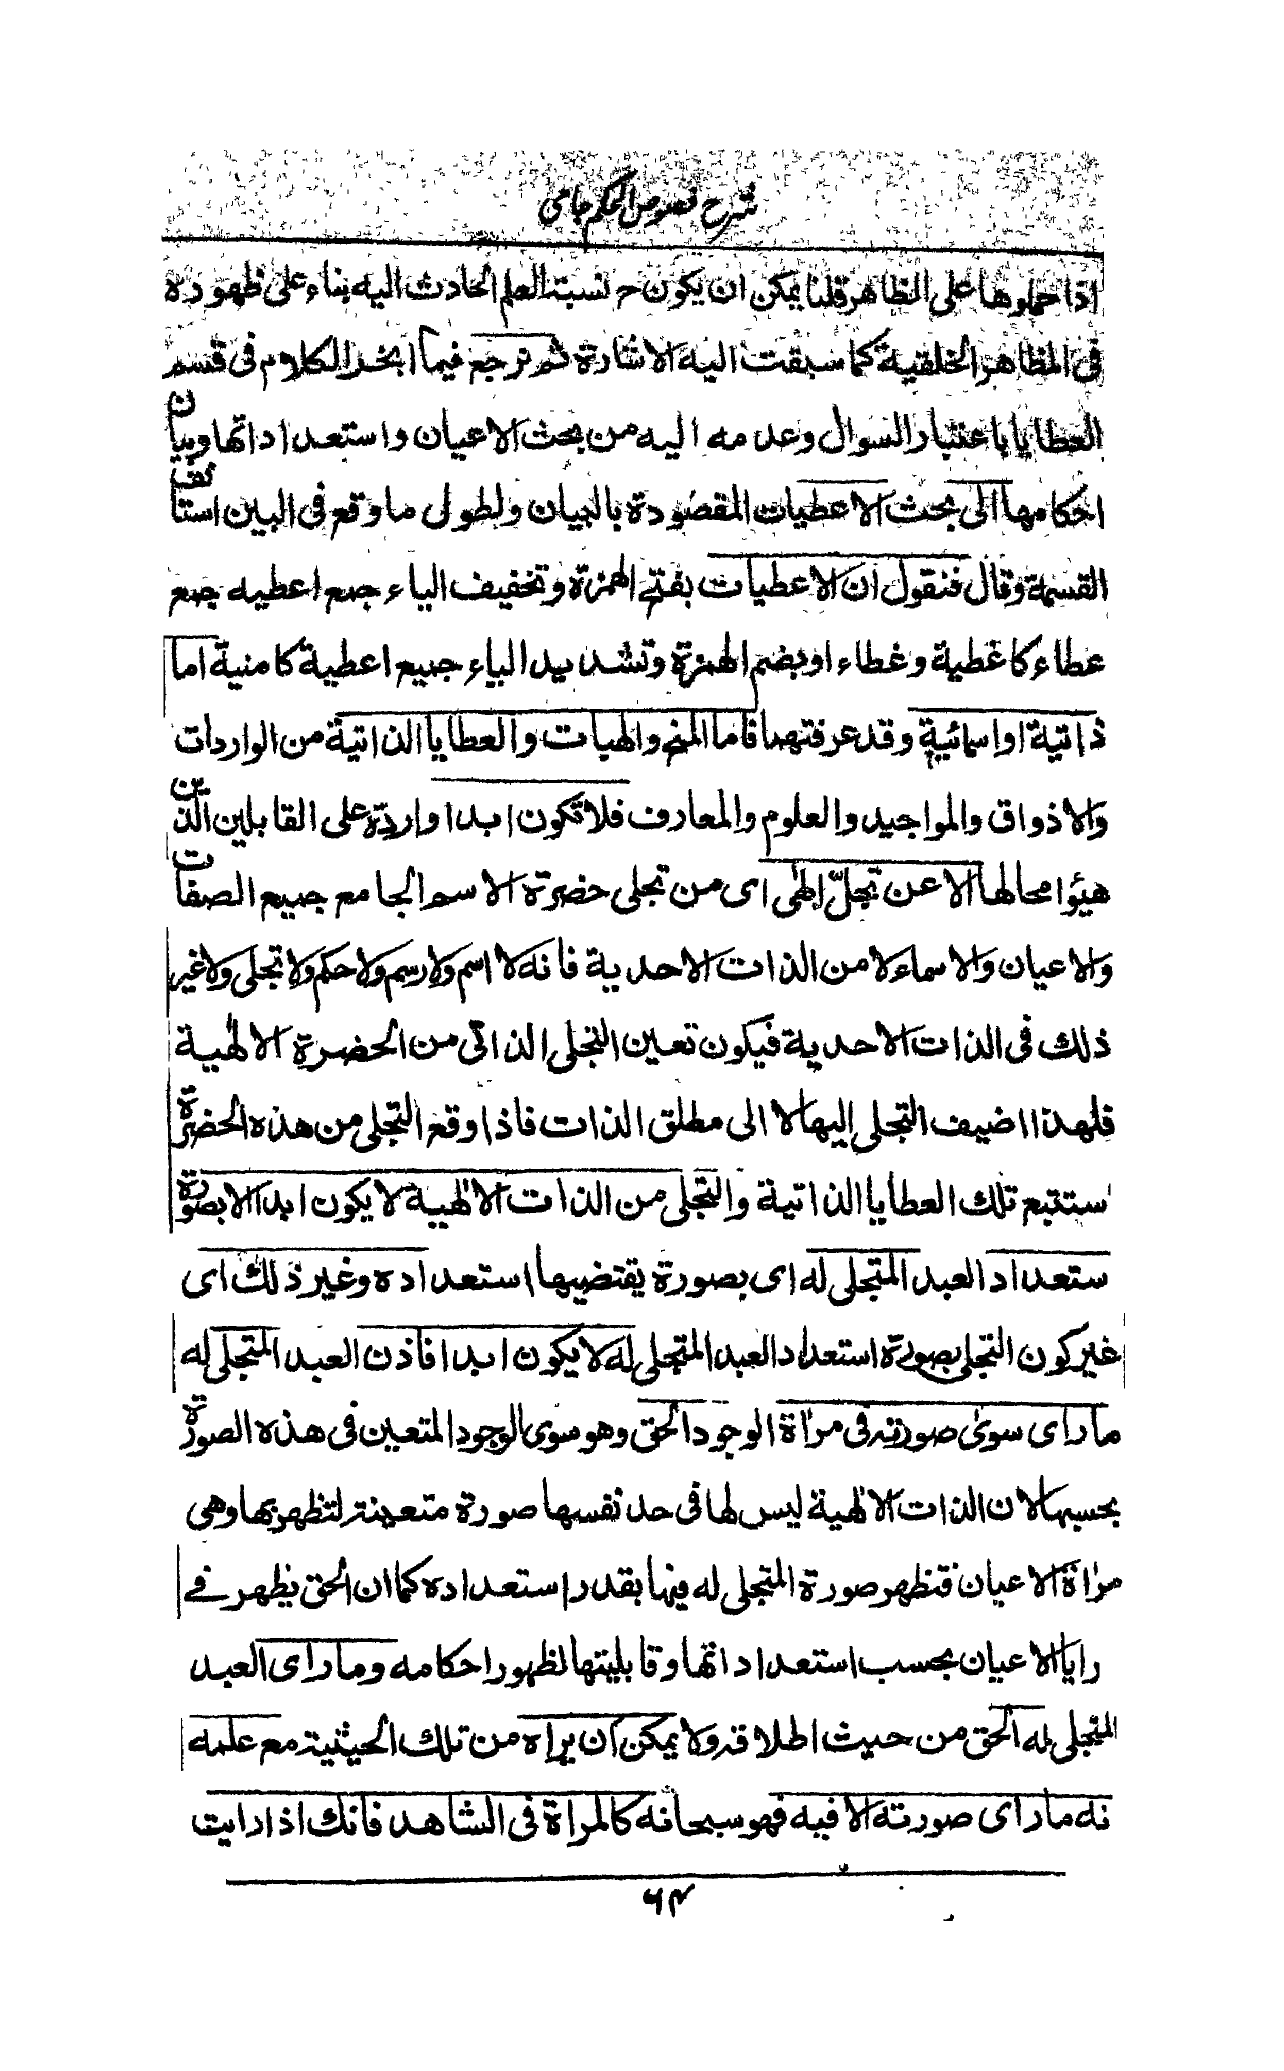 شرح فصوص الحكم جامى
اذا حملوها على الظاهر قلنا يمكن ان يكون ح نسبة العلم الحادث اليه بناء على ظهوره
فى المظاهر الخلقية كما سبقت اليه الاشارة ثم نرجع فيما انجر الكلام فى قسم
العطايا باعتبار السوال وعدمه اليه من بحث الاعيان واستعداداتها وبيان
احكامها الى بحث الاعطيات المقصودة بالبيان ولطول ما وقع فى البين استانف
القسمة وقال فنقول ان الاعطيات بفتح الهمزة وتخفيف الياء جمع اعطيه جمع
عطاء كاغطية وغطاء او بضم الهمزة وتشديد الياء جميع اعطية كامنية اما
ذاتية او اسمائية وقد عرفتهما فاما المنح والهبات والعطايا الذاتية من الواردات
والاذواق والمواجيد والعلوم والمعارف فلا تكون ابدا واردة على القابلين الذين
هيؤا محالها الا عن تجلّ الٰهى اى من تجلى حضرة الاسم الجامع جميع الصفات
والاعيان والاسماء لا من الذات الاحدية فانه لا اسم ولا رسم ولا حكم ولا تجلى ولا غير
ذلك فى الذات الاحدية فيكون تعين التجلى الذاتى من الحضرة الالٰهية
فلهذا اضيف التجلى اليها لا الى مطلق الذات فاذا وقع التجلى من هذه الحضرة
ستتبع تلك العطايا الذاتية والتجلى من الذات الالٰهية لا يكون ابدا الا بصورة
ستعداد العبد المتجلى له اى بصورة يقتضيها استعداده وغير ذلك اى
غير كون التجلى بصورة استعداد العبد المتجلى له لا يكون ابدا فاذن العبد المتجلى له
ما راى سوى صورته فى مرآة الوجود الحق وهو سوى الوجود المتعين فى هذه الصورة
بحسبها لان الذات الالٰهية ليس لها فى حد نفسها صورة متعينة لتظهر بها وهى
مراة الاعيان فتظهر صورة المتجلى له فيها بقدر استعداده كما ان الحق يظهر فے
رايا الاعيان بحسب استعداداتها وقابليتها لظهور احكامه وما راى العبد
المتجلى له الحق من حيث اطلاقه ولا يمكن ان يراه من تلك الحيثية مع علمه
نه ما راى صورته الا فيه فهو سبحانه كالمراة فى الشاهد فانك اذا رايت
۶۴